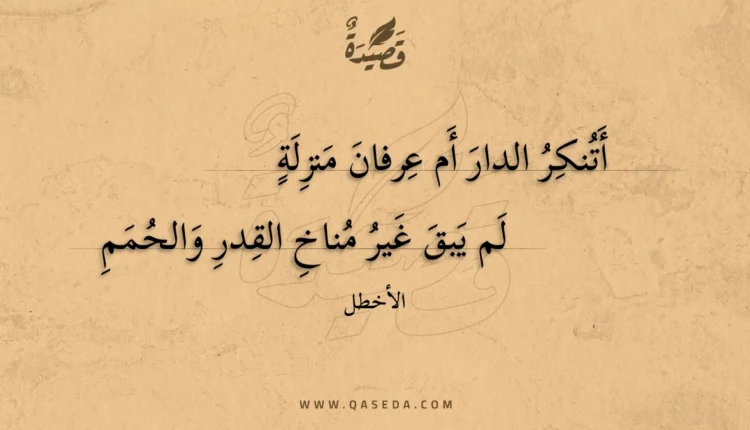 قَصِيْدَةٌ
أَتُنكِرُ الدارَ أَم عِرفانَ مَنزِلَةٍ
لَم يَبقَ غَيرُ مُناخِ القِدرِ وَالحُمَمِ
الأخطل
WWW.QASEDA.COM